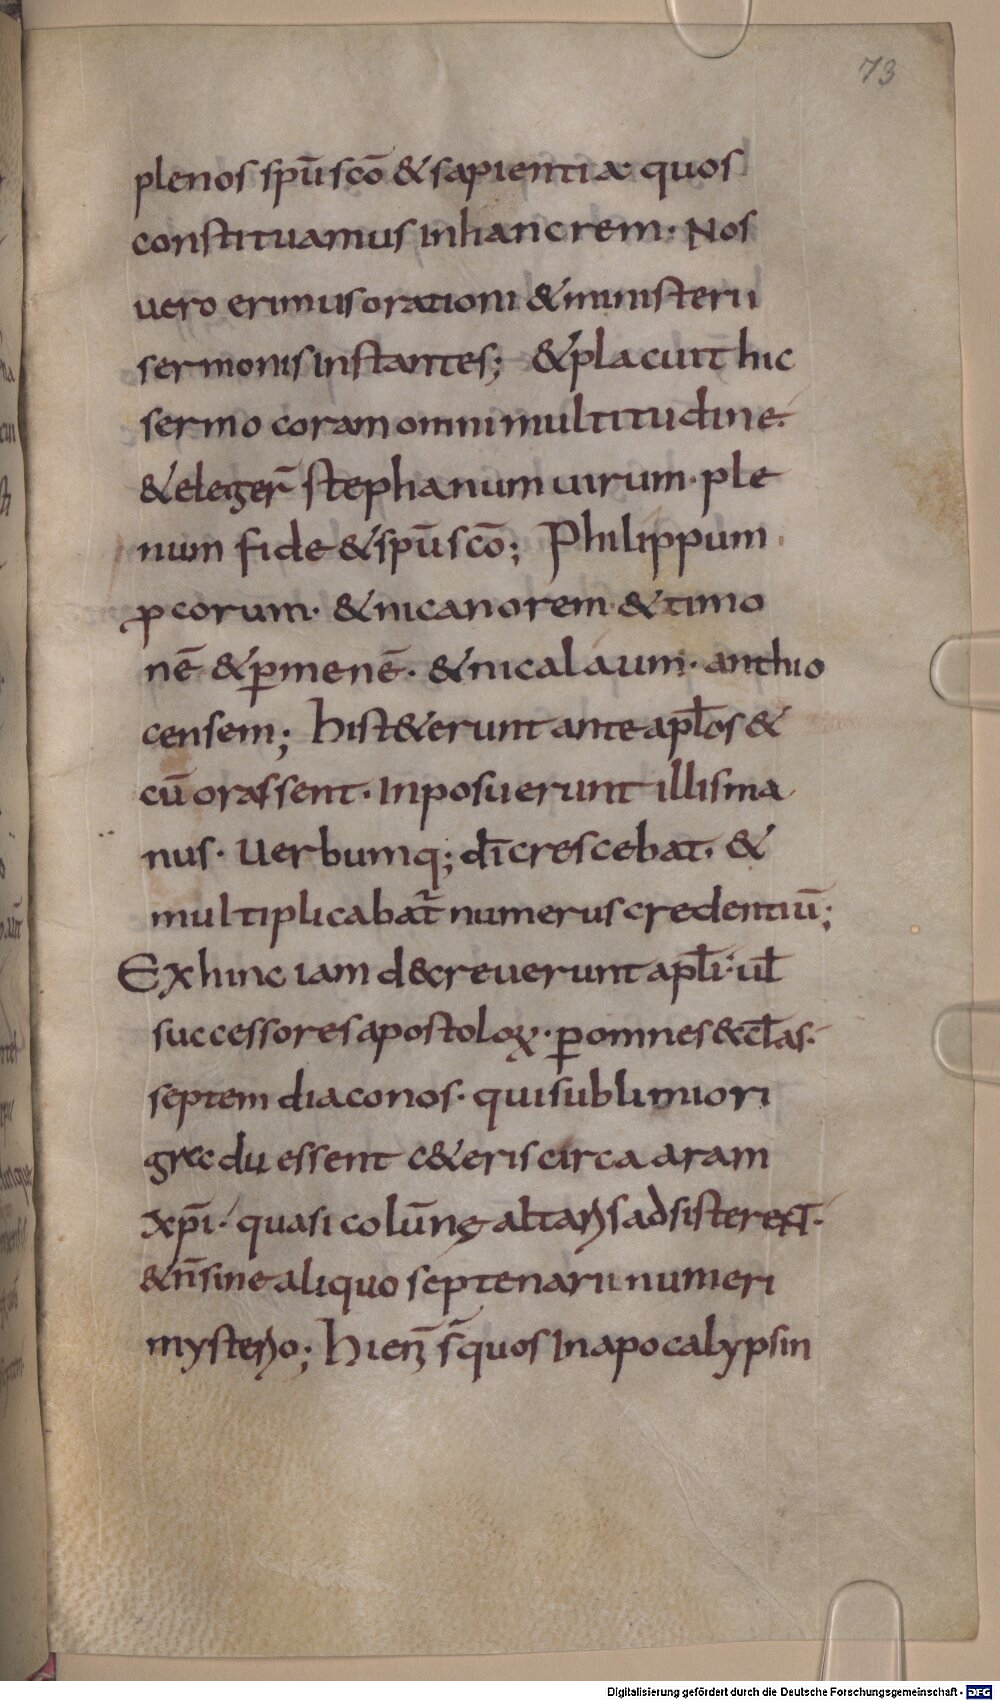 73
plenos sp̄u scō & sapientiæ quos
constituamus in hanc rem· Nos
uero erimus orationi & ministerii
sermonis instantes; & placuit hic
sermo coram omni multitudine·
& eleger̄ stephanum uirum· ple
num fide & sp̄u scō; Philippum
ꝓcorum· & nicanorem· & timo
nē & ꝑmenē· & nicalaum· anthio
censem; hi st&erunt ante apl̄os &
cū orassent· Inposuerunt illis ma
nus· Uerbumq; dī crescebat· &
multiplicabat̄ numerus credentiū;
Ex hinc iam decreuerunt apl̄i· ul̄
successores apostoloꝝ· ꝑ omnes eccl̄as·
septem diaconos· qui sublimiori
gradu essent c&eris circa aram
xp̄i· quasi colūnę altaris adsisterent·
& n̄ sine aliquo septenarii numeri
mysterio; Hi enī s̄ quos In apocalypsin
Digitalisierung gefördert durch die Deutsche Forschungsgemeinschaft - DFG